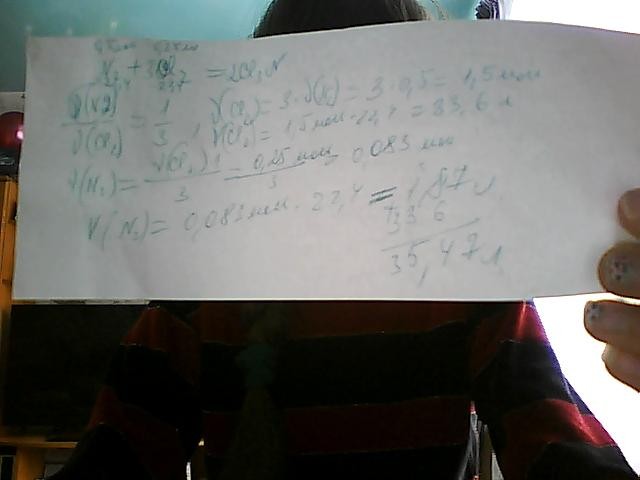 0,5 моль 0,25 моль
N₂ + 3Cl₂ = 2Cl₃N
22,4 22,4
ν(N2)/ν(Cl₂) = 1/3, ν(Cl₂) = 3·ν(N₂) = 3·0,5 = 1,5 моль
V(Cl₂) = 1,5 моль·22,4 = 33,6 л
ν(N₂) = ν(Cl₂)·1/3 = 0,25 моль/3 = 0,083 моль
V(N₂) = 0,083 моль · 22,4 = 1,87 л
+33 6
35,47 л